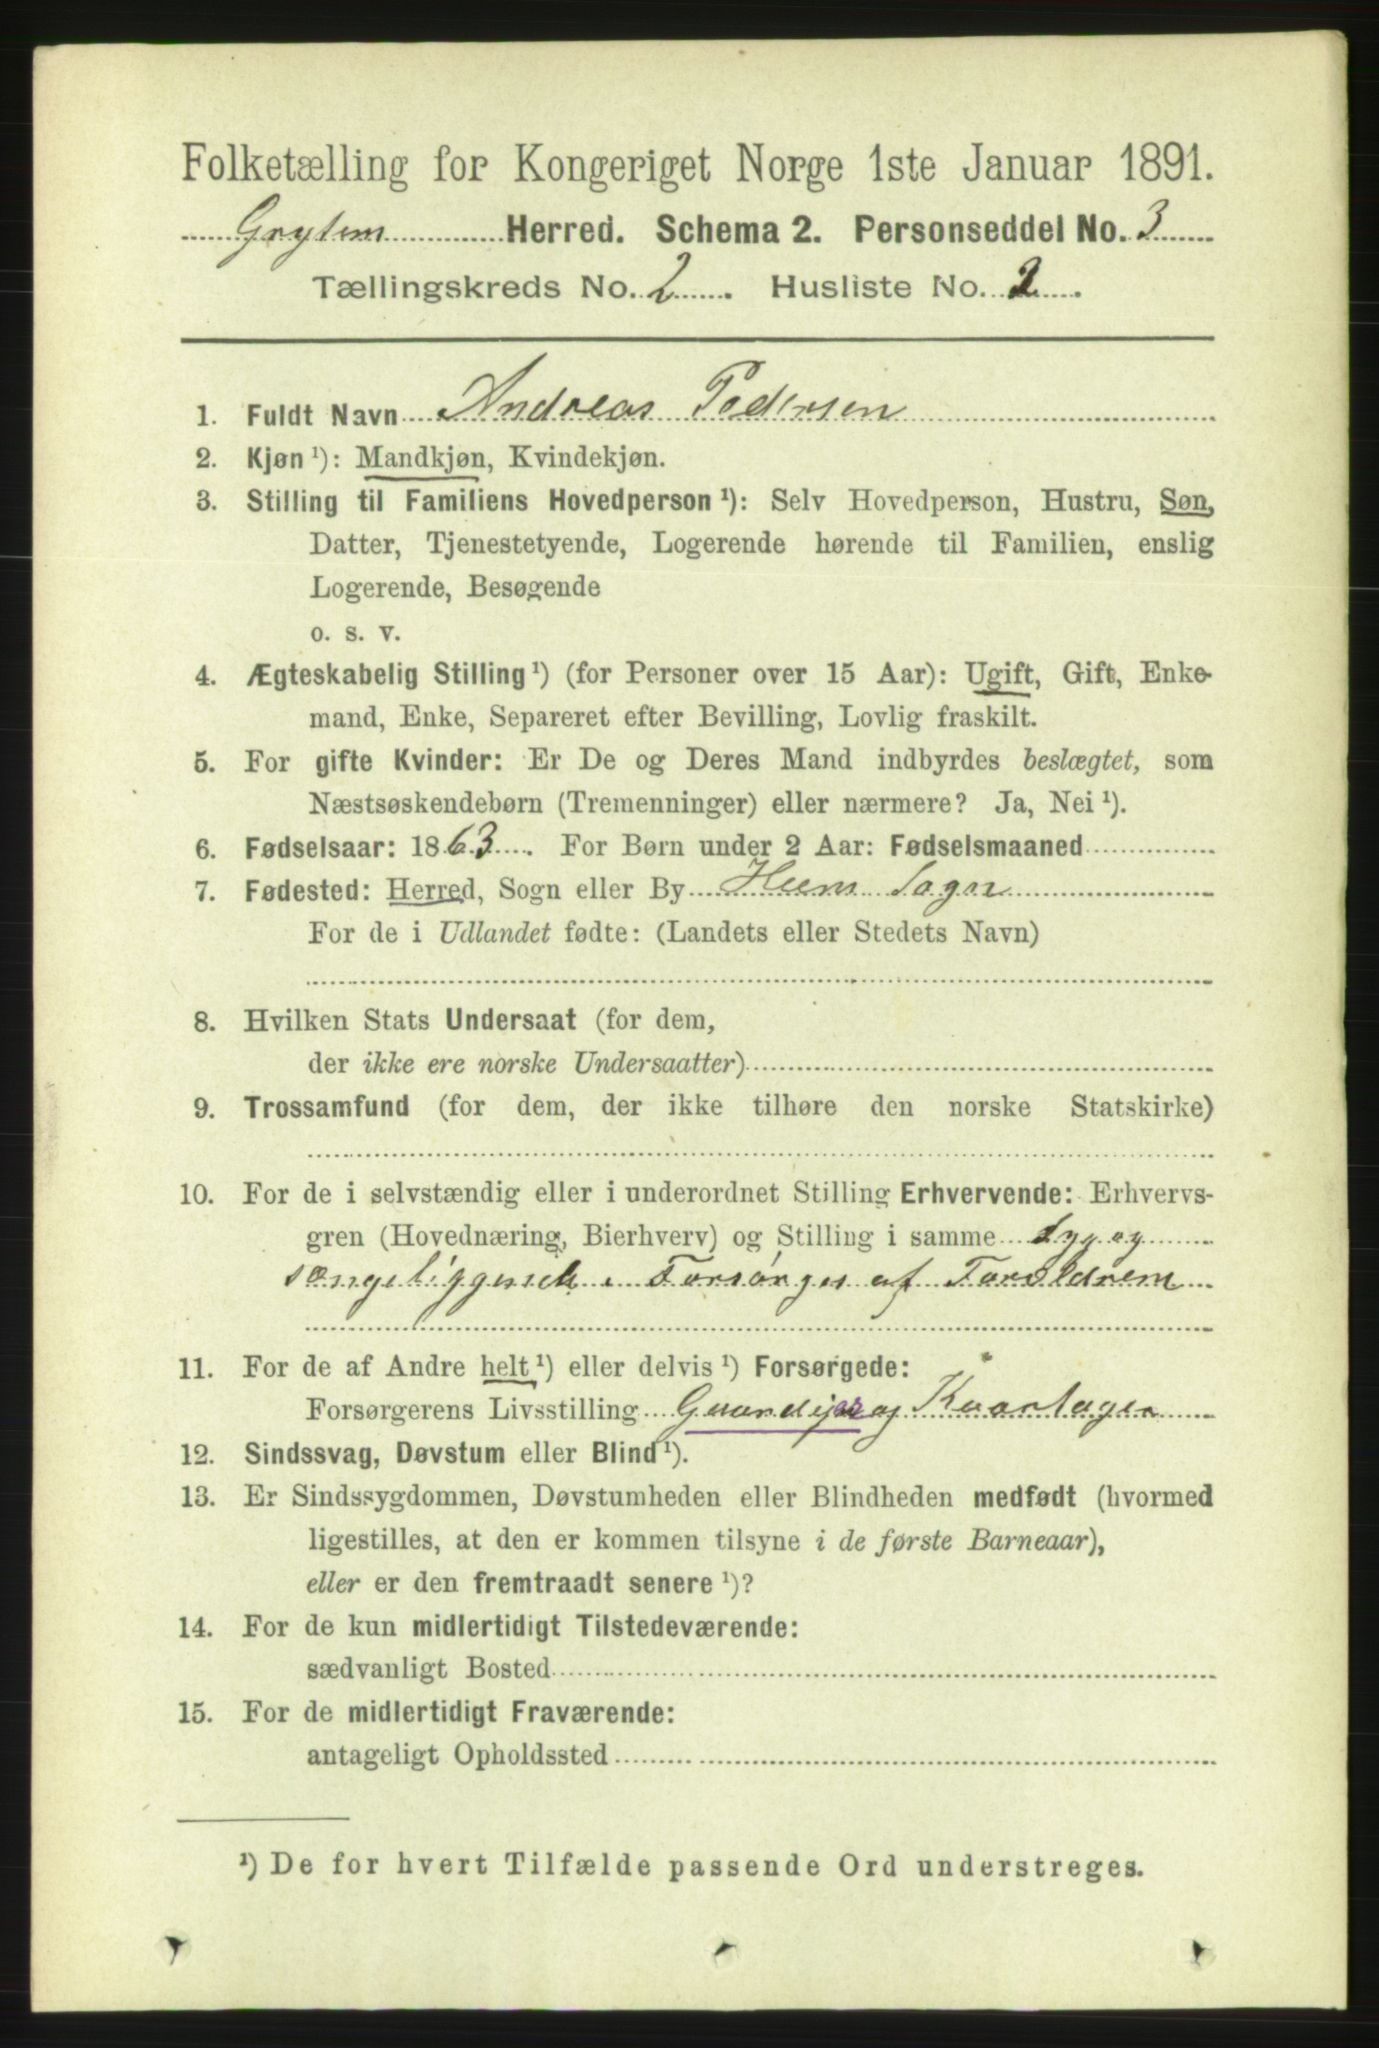 Folketælling for Kongeriget Norge 1ste Januar 1891.
Gryten Herred. Schema 2. Personseddel No. 3
Tællingskreds No. 2. Husliste No. 2.
1. Fuldt Navn Andreas Pedersen
2. Kjøn ¹): Mandkjøn, Kvindekjøn.
3. Stilling til Familiens Hovedperson ¹): Selv Hovedperson, Hustru, Søn,
Datter, Tjenestetyende, Logerende hørende til Familien, enslig
Logerende, Besøgende
o. s. v.
4. Ægteskabelig Stilling ¹) (for Personer over 15 Aar): Ugift, Gift, Enke-
mand, Enke, Separeret efter Bevilling, Lovlig fraskilt.
5. For gifte Kvinder: Er De og Deres Mand indbyrdes beslægtet, som
Næstsøskendebørn (Tremenninger) eller nærmere? Ja, Nei ¹).
6. Fødselsaar: 1863. For Børn under 2 Aar: Fødselsmaaned
7. Fødested: Herred, Sogn eller By Heens Sogn
For de i Udlandet fødte: (Landets eller Stedets Navn)
8. Hvilken Stats Undersaat (for dem,
der ikke ere norske Undersaatter)
9. Trossamfund (for dem, der ikke tilhøre den norske Statskirke)
10. For de i selvstændig eller i underordnet Stilling Erhvervende: Erhvervs-
gren (Hovednæring, Bierhverv) og Stilling i samme Syg og
sængeliggende. Forsørges af Forældrene
11. For de af Andre helt ¹) eller delvis ¹) Forsørgede:
Forsørgerens Livsstilling Gaardejer og
12. Sindssvag, Døvstum eller Blind ¹).
13. Er Sindssygdommen, Døvstumheden eller Blindheden medfødt (hvormed
ligestilles, at den er kommen tilsyne i de første Barneaar),
eller er den fremtraadt senere ¹)?
14. For de kun midlertidigt Tilstedeværende:
sædvanligt Bosted
15. For de midlertidigt Fraværende:
antageligt Opholdssted
¹) De for hvert Tilfælde passende Ord understreges.